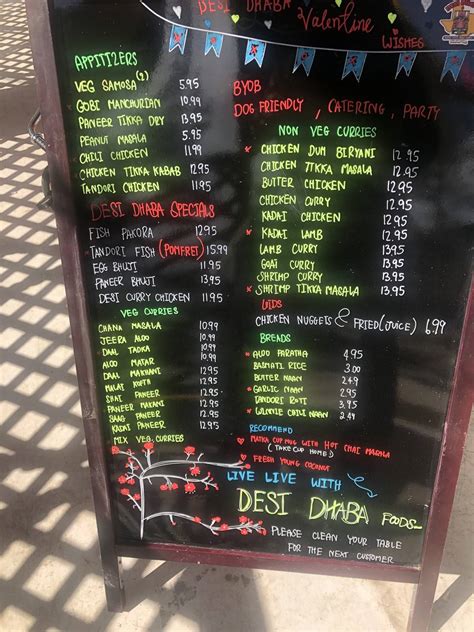 DESI DHABA
Valentine
WISHES
APPITIZERS
VEG SAMOSA(2) 5.95
GOBI MANCHURIAN 10.99
PANEER TIKKA DRY 13.95
PEANUT MASALA 5.95
CHILI CHICKEN 11.99
CHICKEN TIKKA KABAB 12.95
TANDORI CHICKEN 11.95
DESI DHABA SPECIALS
FISH PAKORA 12.95
TANDORI FISH (POMFRET) 15.99
EGG BHUJI 11.95
PANEER BHUJI 13.95
DESI CURRY CHICKEN 11.95
VEG CURRIES
CHANA MASALA 10.99
JEERA ALOO 10.99
DAAL TADKA 10.99
ALOO MATAR
DAAL MAKHANI
MALAI KOFTA
SHAI PANEER
PANEER MAKANI
SAAG PANEER
KADAI PANEER
MIX VEG. CURRIES
BYOB
DOG FRIENDLY, CATERING, PARTY
NON VEG CURRIES
CHICKEN DUM BIRYANI 12.95
CHICKEN TIKKA MASALA 12.95
BUTTER CHICKEN 12.95
CHICKEN CURRY 12.95
KADAI CHICKEN 12.95
KADAI LAMB 12.95
LAMB CURRY 13.95
GOAT CURRY 13.95
SHRIMP CURRY 13.95
SHRIMP TIKKA MASALA 13.95
CHICKEN NUGGETS & FRIED(JUICE) 6.99
BREADS
ALOO PARATHA 4.95
BASMATI RICE 3.00
BUTTER NAAN 2.49
GARLIC NAAN 2.95
TANDORI ROTI 2.49
CHILI NAAN 2.49
RECOMMEND
MATKA CUP MUG WITH HOT CHAI MASALA
(TAKE CUP HOME)
FRESH YOUNG COCONUT
LIVE LIVE WITH
DESI DHABA FOODS
PLEASE CLEAN YOUR TABLE
FOR THE NEXT CUSTOMER